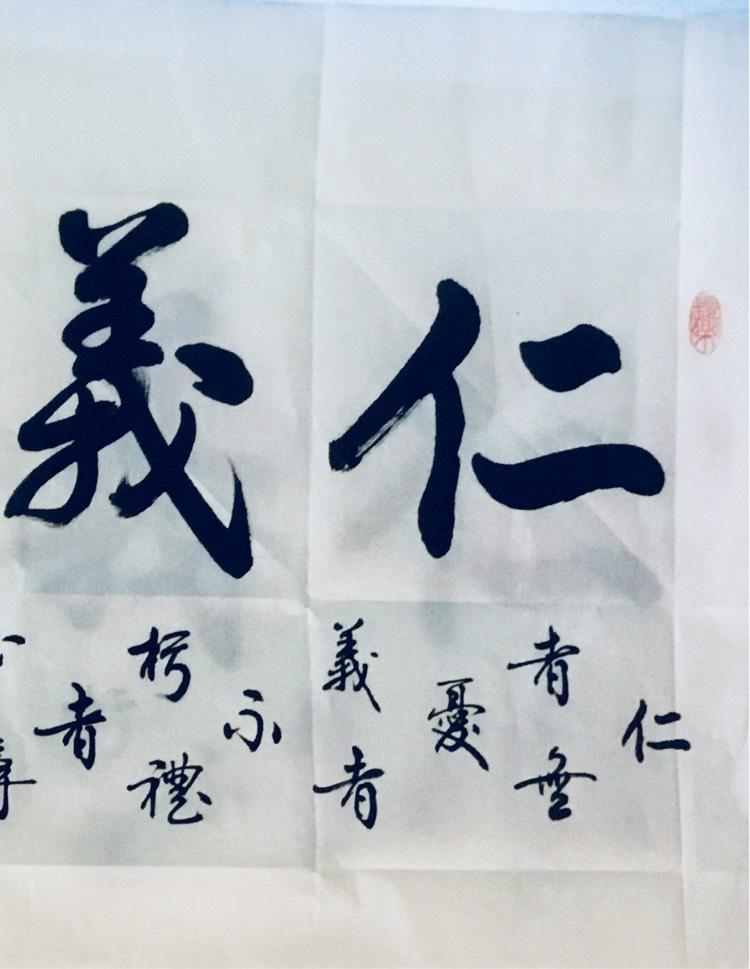 仁義
仁
者無
憂
義者
不
朽禮
者